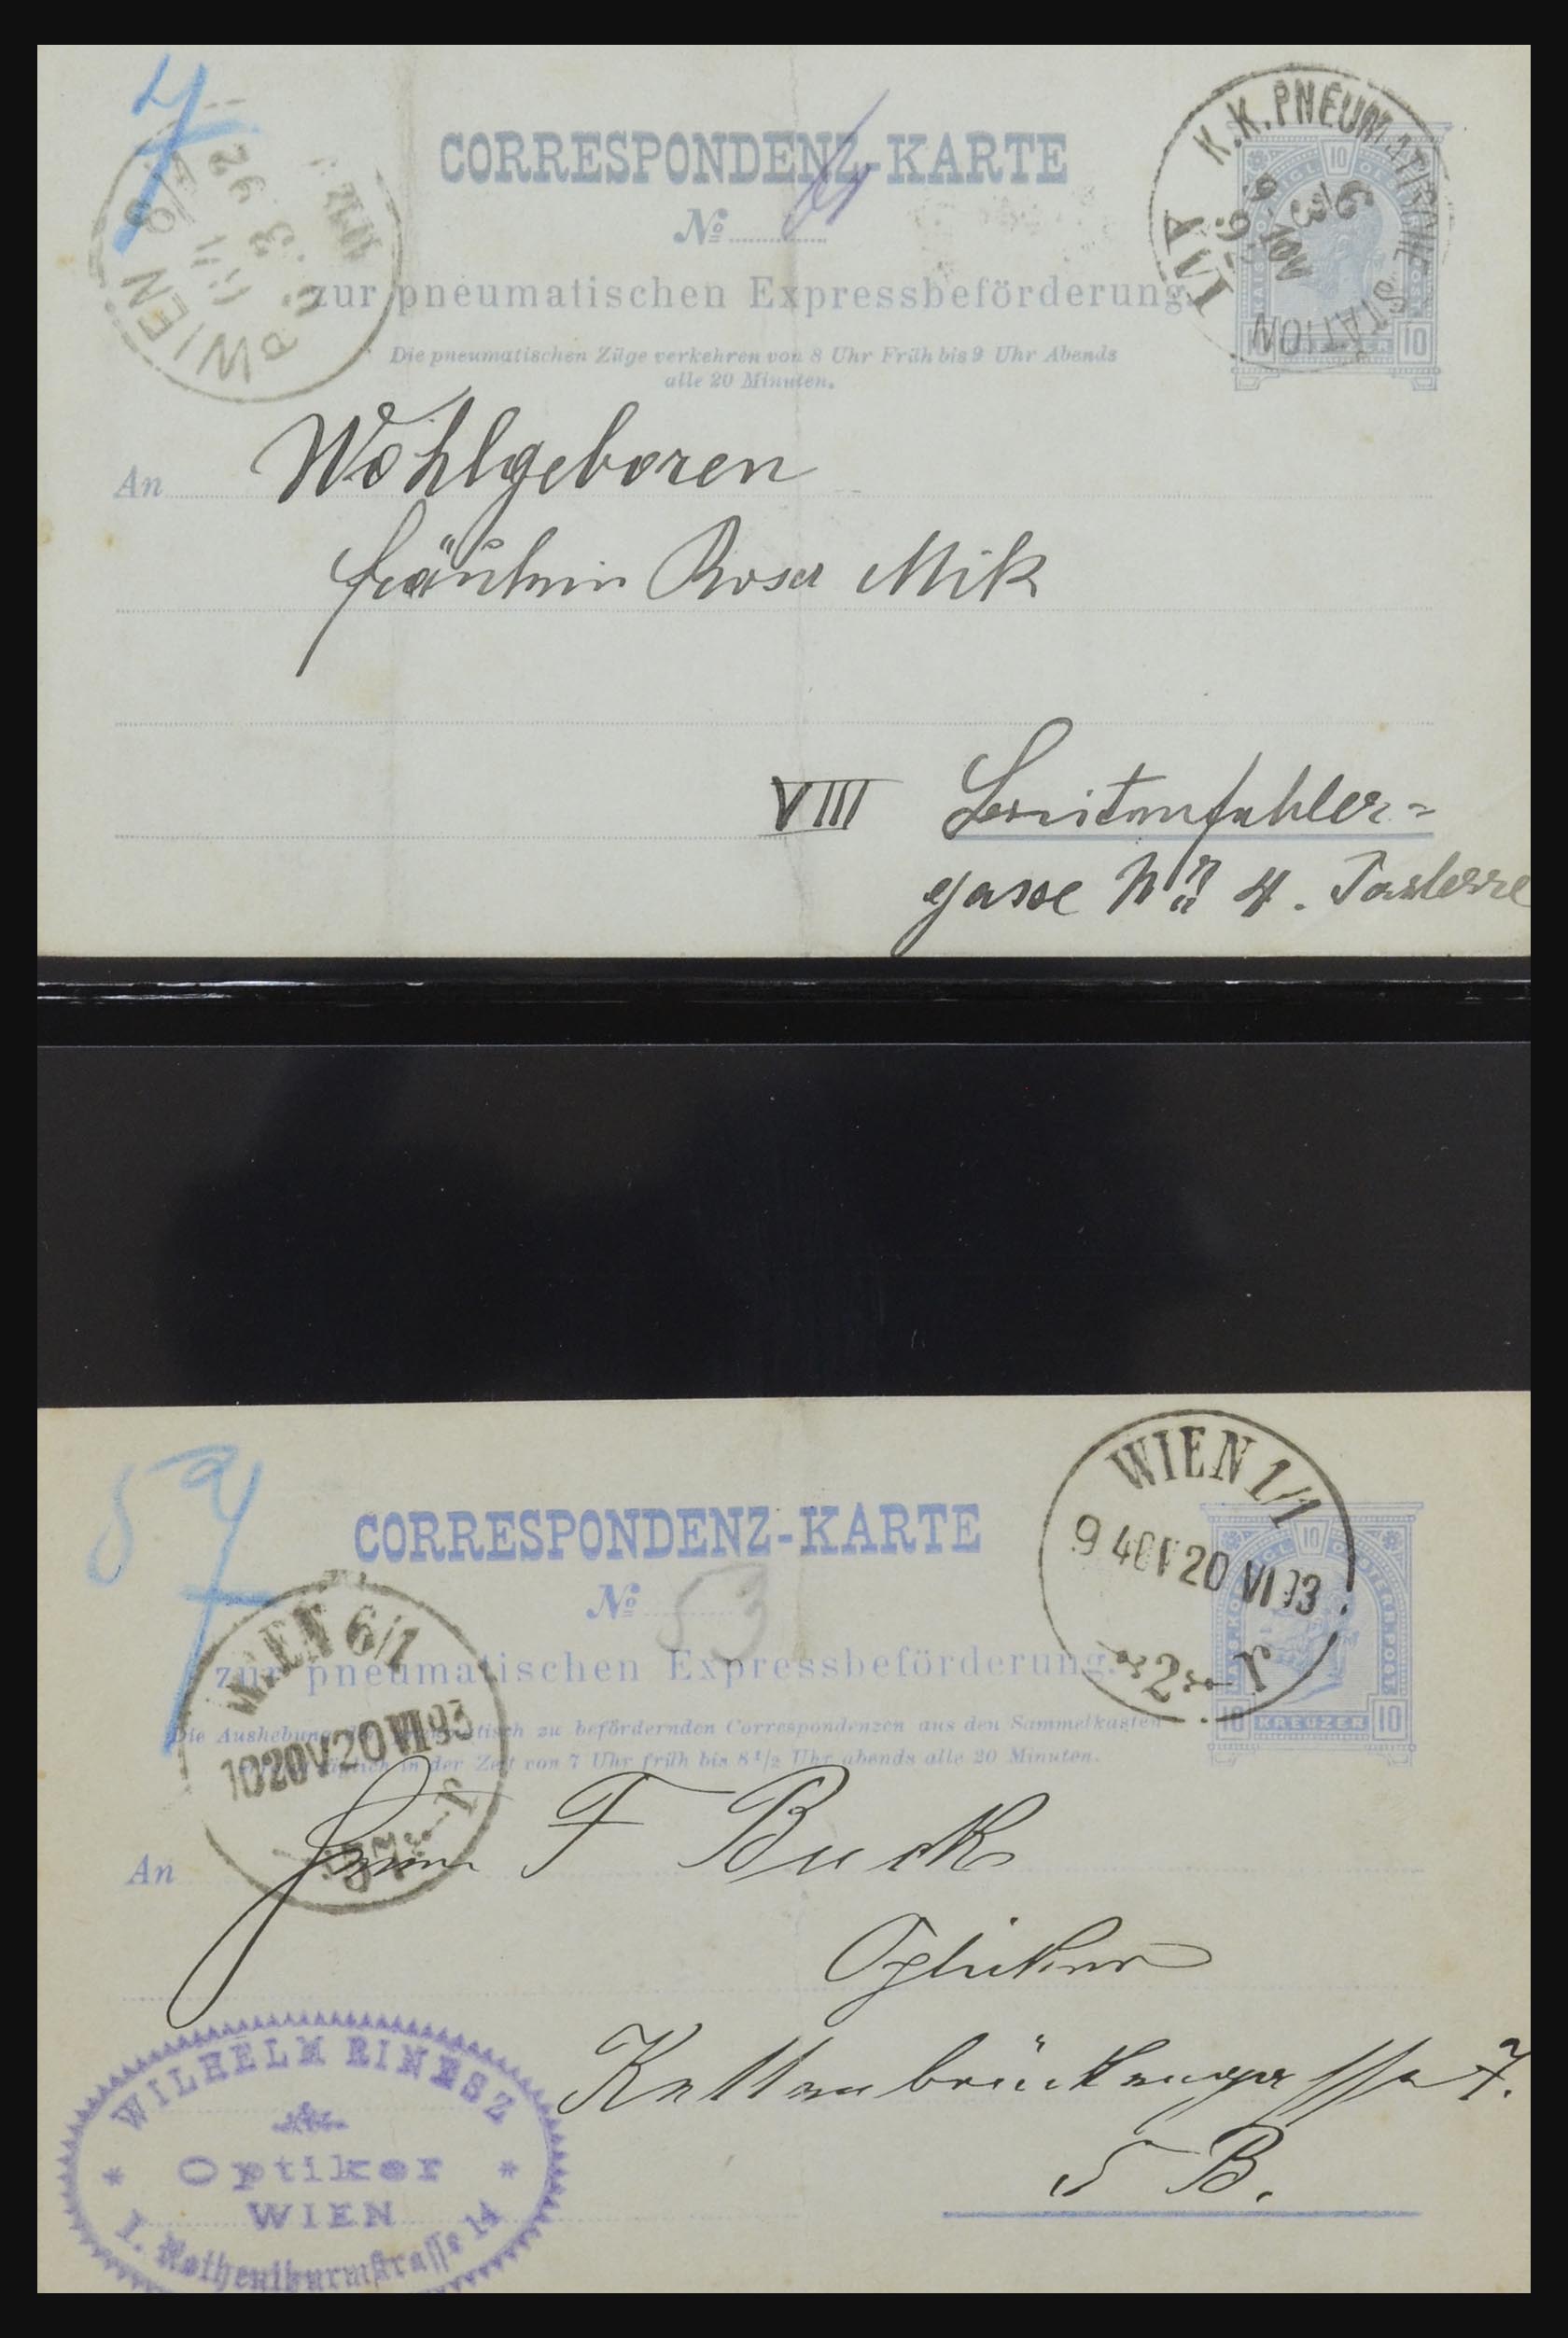 CORRESPONDENZ-KARTE
№
zur pneumatischen Expressbeförderung.
Die pneumatischen Züge verkehren von 8 Uhr Früh bis 9 Uhr Abends
alle 20 Minuten.
K.K. PNEUMATISCHE STATION
KREUZER
10 10
WIEN
An Wohlgeboren
Fräulein Rosa Mik
VIII
gasse № 4.
CORRESPONDENZ-KARTE
№ 53
zur pneumatischen Expressbeförderung.
Die zu befördernden Correspondenzen aus den Sammelkasten
in der Zeit von 7 Uhr früh bis 8 1/2 Uhr abends alle 20 Minuten.
WIEN 1/1
9 40V 20 VI 93
2 r
10 KREUZER 10
WIEN 6/1
1020V20VI93
An Herrn F Buck
Optiker
Kettenbrückengasse 7.
5 B.
WILHELM RINESZ
Optiker
WIEN
I. Rothenthurmstrasse 14